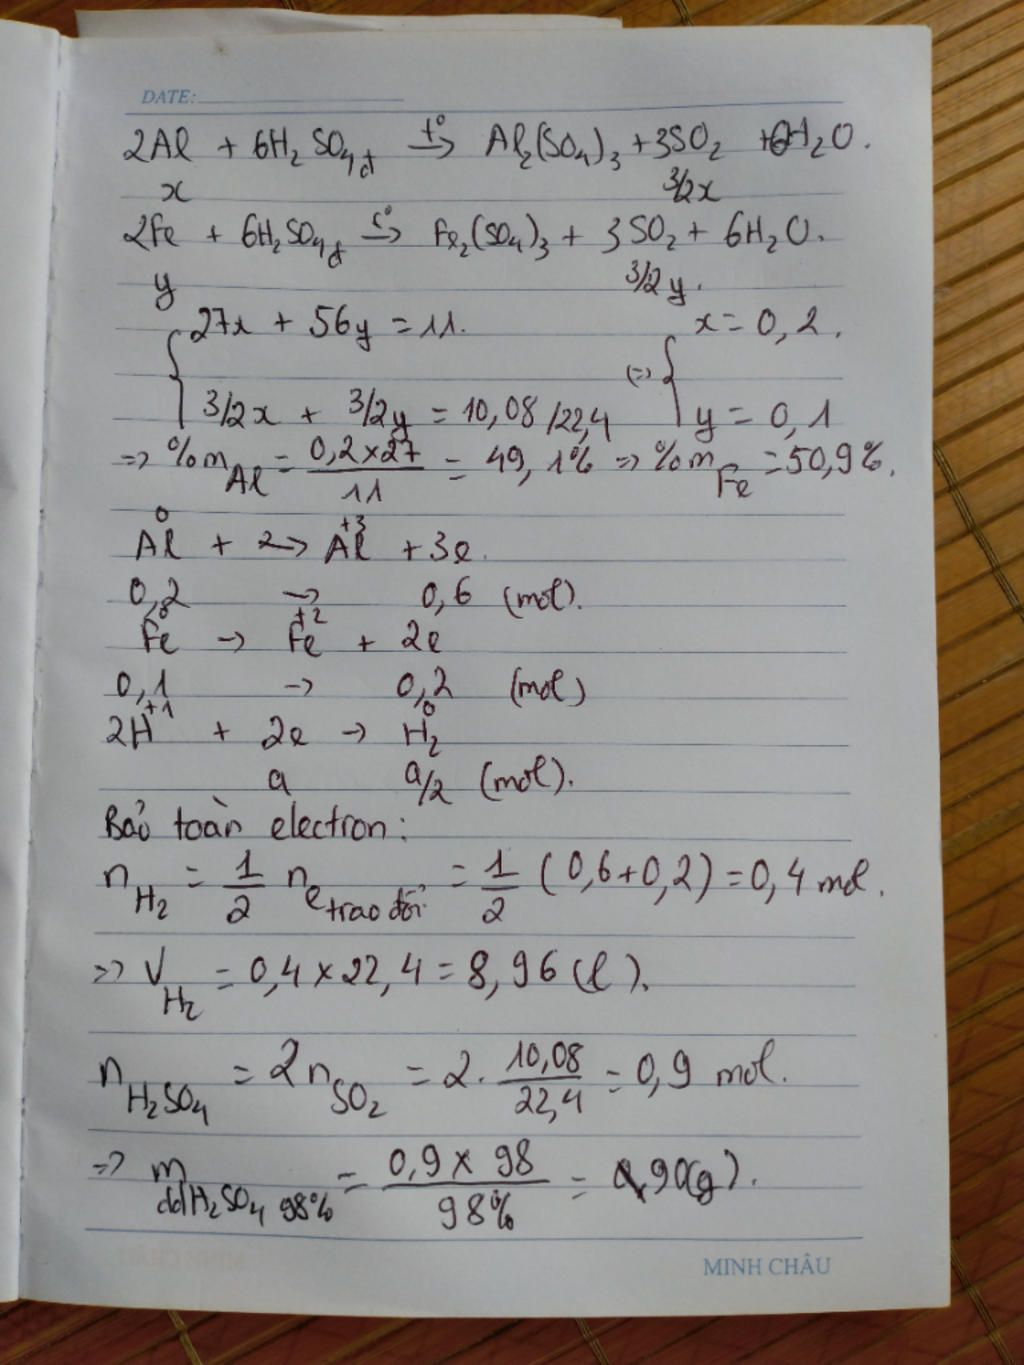 DATE:
2Al + 6H₂SO₄đ t°→ Al₂(SO₄)₃ + 3SO₂ + 6H₂O.
x 3/2x
2Fe + 6H₂SO₄đ t°→ Fe₂(SO₄)₃ + 3SO₂ + 6H₂O.
y 3/2y.
{ 27x + 56y = 11. x = 0,2.
3/2x + 3/2y = 10,08/22,4 (=> { y = 0,1
=> %m Al = 0,2×27/11 = 49,1% => %m Fe = 50,9%.
Al⁰ + 2 -> Al⁺³ + 3e.
0,2 -> 0,6 (mol).
Fe⁰ -> Fe⁺² + 2e
0,1 -> 0,2 (mol)
2H⁺¹ + 2e -> H₂⁰
a a/2 (mol).
Bảo toàn electron:
n H₂ = 1/2 n e trao đổi = 1/2 (0,6+0,2) = 0,4 mol.
=> V H₂ = 0,4 × 22,4 = 8,96 (l).
n H₂SO₄ = 2n SO₂ = 2. 10,08/22,4 = 0,9 mol.
=> m ddH₂SO₄ 98% = 0,9 × 98/98% = 90(g).
MINH CHÂU